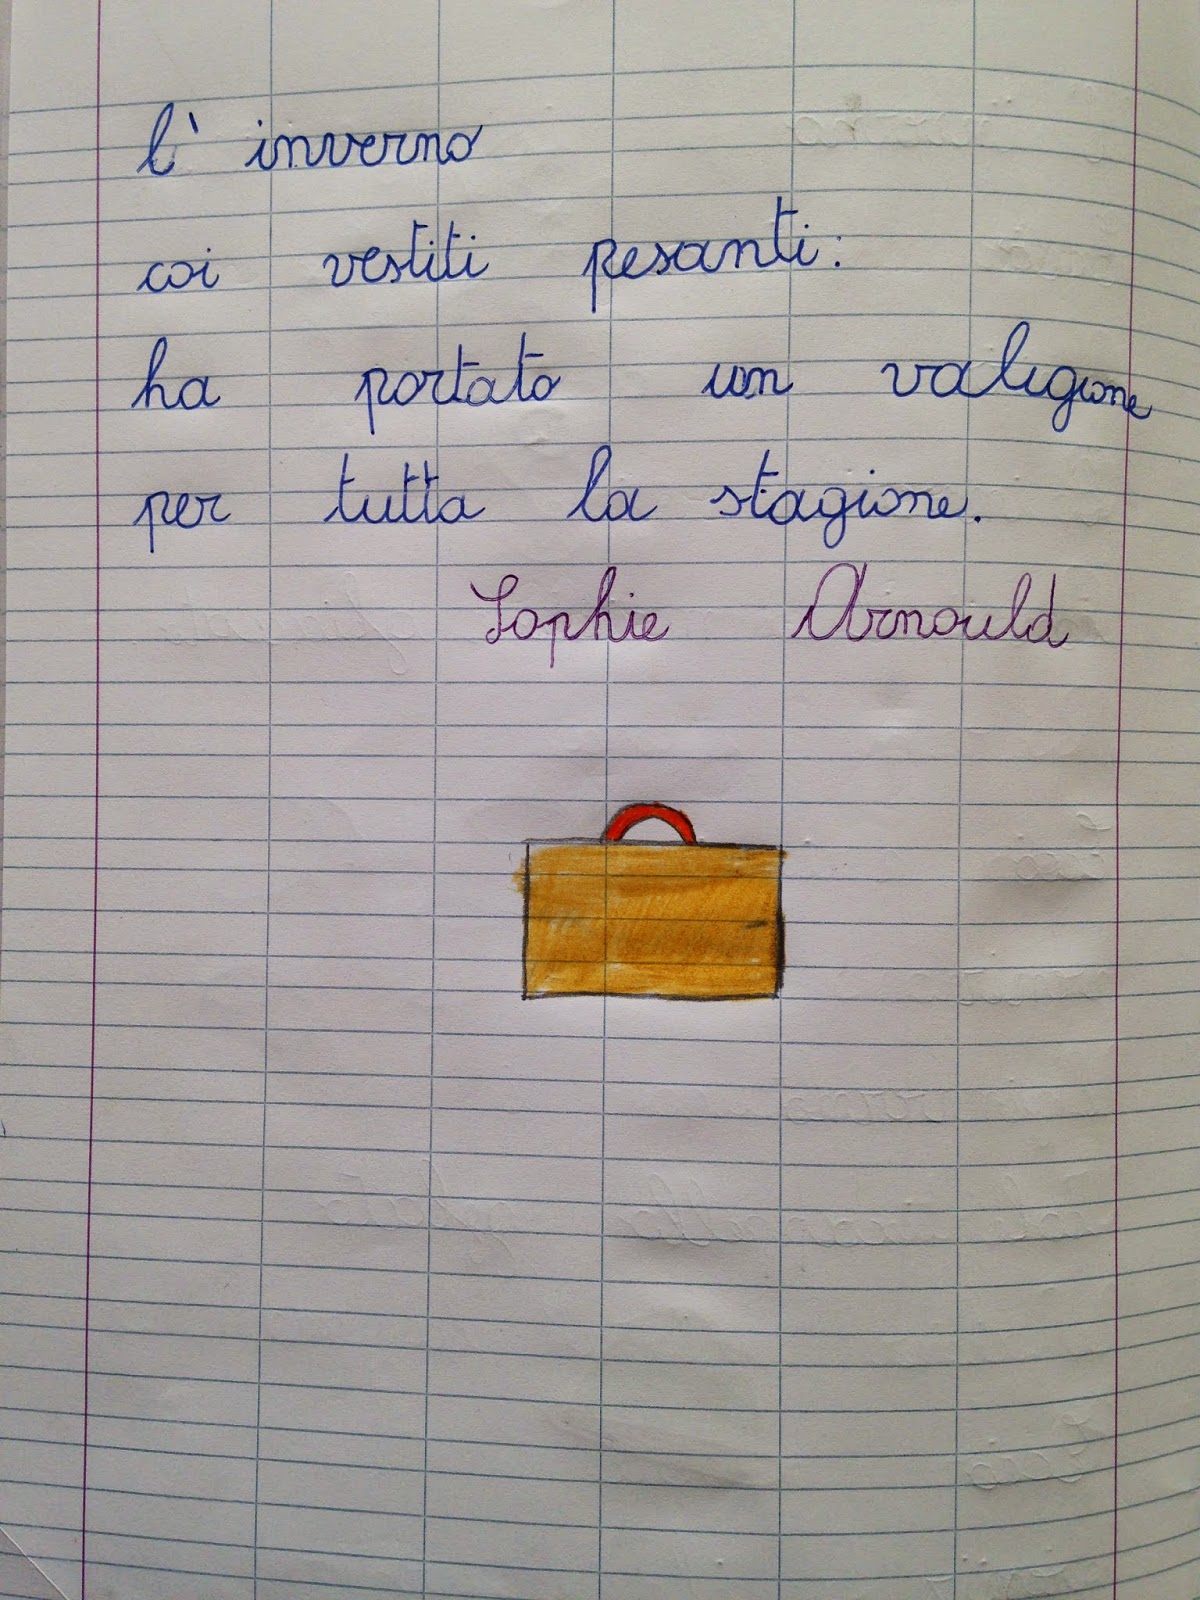 l' inverno
coi vestiti pesanti:
ha portato un valigione
per tutta la stagione.
Sophie Arnould